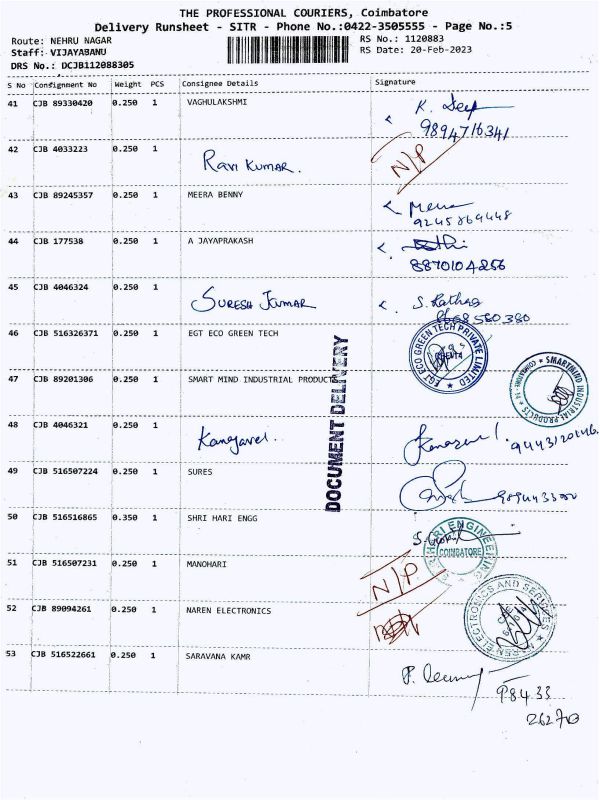 THE PROFESSIONAL COURIERS, Coimbatore
Delivery Runsheet - SITR - Phone No.:0422-3505555 - Page No.:5
Route: NEHRU NAGAR RS No.: 1120883
Staff: VIJAYABANU RS Date: 20-Feb-2023
DRS No.: DCJB112088305
S No Consignment No Weight PCS Consignee Details Signature
41 CJB 89330420 0.250 1 VAGHULAKSHMI K. Deep
9894716341
42 CJB 4033223 0.250 1 Ravi Kumar. N/P
43 CJB 89245357 0.250 1 MEERA BENNY Meera
9245869448
44 CJB 177538 0.250 1 A JAYAPRAKASH
8870104256
45 CJB 4046324 0.250 1 Suresh Kumar S. Rathna
46 CJB 516326371 0.250 1 EGT ECO GREEN TECH EGT ECO GREEN TECH PRIVATE LIMITED
47 CJB 89201306 0.250 1 SMART MIND INDUSTRIAL PRODUCTS SMARTMIND INDUSTRIAL PRODUCTS
DOCUMENT DELIVERY
48 CJB 4046321 0.250 1
49 CJB 516507224 0.250 1 SURES
50 CJB 516516865 0.350 1 SHRI HARI ENGG HARI ENGINEERING COIMBATORE
51 CJB 516507231 0.250 1 MANOHARI N/P
52 CJB 89094261 0.250 1 NAREN ELECTRONICS NAREN ELECTRONICS AND SERVICES
53 CJB 516522661 0.250 1 SARAVANA KAMR
98433
26270